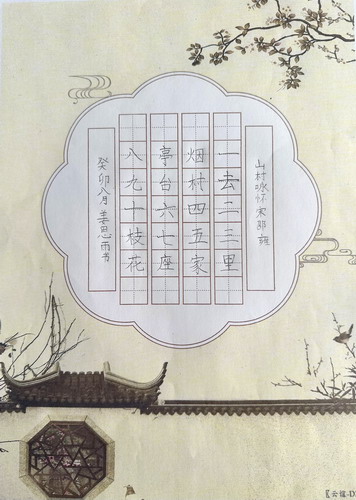 山村咏怀 宋 邵雍
一去二三里
烟村四五家
亭台六七座
八九十枝花
癸卯八月 姜思雨书
【云谜-D